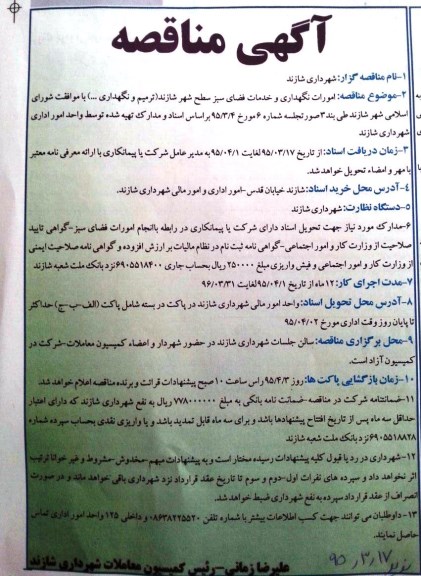 آگهی مناقصه
۱-نام مناقصه گزار: شهرداری شازند
۲-موضوع مناقصه: امورات نگهداری و خدمات فضای سبز سطح شهر شازند(ترمیم و نگهداری ...) با موافقت شورای
اسلامی شهر شازند طی بند ۳ صورتجلسه شماره ۶ مورخ ۹۵/۳/۴ براساس اسناد و مدارک تهیه شده توسط واحد امور اداری
شهرداری شازند
۳-زمان دریافت اسناد: از تاریخ ۹۵/۰۳/۱۷ لغایت ۹۵/۰۴/۱ به مدیر عامل شرکت یا پیمانکاری با ارائه معرفی نامه معتبر
با مهر و امضاء تحویل خواهد شد.
۴-آدرس محل خرید اسناد: شازند خیابان قدس-امور اداری و امور مالی شهرداری شازند.
۵-دستگاه نظارت: شهرداری شازند
۶-مدارک مورد نیاز جهت تحویل اسناد دارای شرکت یا پیمانکاری در رابطه باانجام امورات فضای سبز-گواهی تایید
صلاحیت از وزارت کار و امور اجتماعی-گواهی نامه ثبت نام در نظام مالیات بر ارزش افزوده و گواهی نامه صلاحیت ایمنی
از وزارت کار و امور اجتماعی و فیش واریزی مبلغ ۲۵۰۰۰۰ ریال بحساب جاری ۶۹۰۵۵۱۸۴۰۰ نزد بانک ملت شعبه شازند
۷-مدت اجرای کار: ۱۲ ماه از تاریخ ۹۵/۰۴/۱ لغایت ۹۶/۰۳/۳۱
۸-آدرس محل تحویل اسناد: واحد امور مالی شهرداری شازند در پاکت در بسته شامل پاکت (الف-ب-ج) حداکثر
تا پایان روز وقت اداری مورخ ۹۵/۰۴/۰۲
۹-محل برگزاری مناقصه: سالن جلسات شهرداری شازند در حضور شهردار و اعضاء کمیسیون معاملات-شرکت در
کمیسیون آزاد است.
۱۰-زمان بازگشایی پاکت ها: روز ۹۵/۴/۳ راس ساعت ۱۰ صبح پیشنهادات قرائت و برنده مناقصه اعلام خواهد شد.
۱۱-ضمانتنامه شرکت در مناقصه-ضمانت نامه بانکی به مبلغ ۷۷۸۰۰۰۰۰۰ ریال به نفع شهرداری شازند که دارای اعتبار
حداقل سه ماه پس از تاریخ افتتاح پیشنهادها باشد و برای سه ماه قابل تمدید باشد و یا واریزی نقدی بحساب سپرده شماره
۶۹۰۵۵۱۸۸۲۸ نزد بانک ملت شعبه شازند
۱۲-شهرداری در رد یا قبول کلیه پیشنهادات رسیده مختار است و به پیشنهادات مبهم-مخدوش-مشروط و غیر خوانا ترتیب
اثر نخواهد داد و سپرده های نفرات اول-دوم و سوم تا تاریخ عقد قرارداد نزد شهرداری باقی خواهد ماند و در صورت
انصراف از عقد قرارداد سپرده به نفع شهرداری ضبط خواهد شد.
۱۳-داوطلبان می توانند جهت کسب اطلاعات بیشتر با شماره تلفن ۰۸۶۳۸۲۴۵۵۲۰ و داخلی ۱۲۵ واحد امور اداری تماس
حاصل نمایند.
علیرضا زمانی-رئیس کمیسیون معاملات شهرداری شازند
۹۵/۳/۱۷